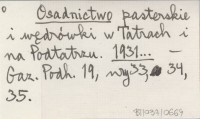 Osadnictwo pasterskie
i wędrówki w Tatrach i
na Podtatrzu. 1931... –
Gaz. Podh. 19, 33, 34,
35.